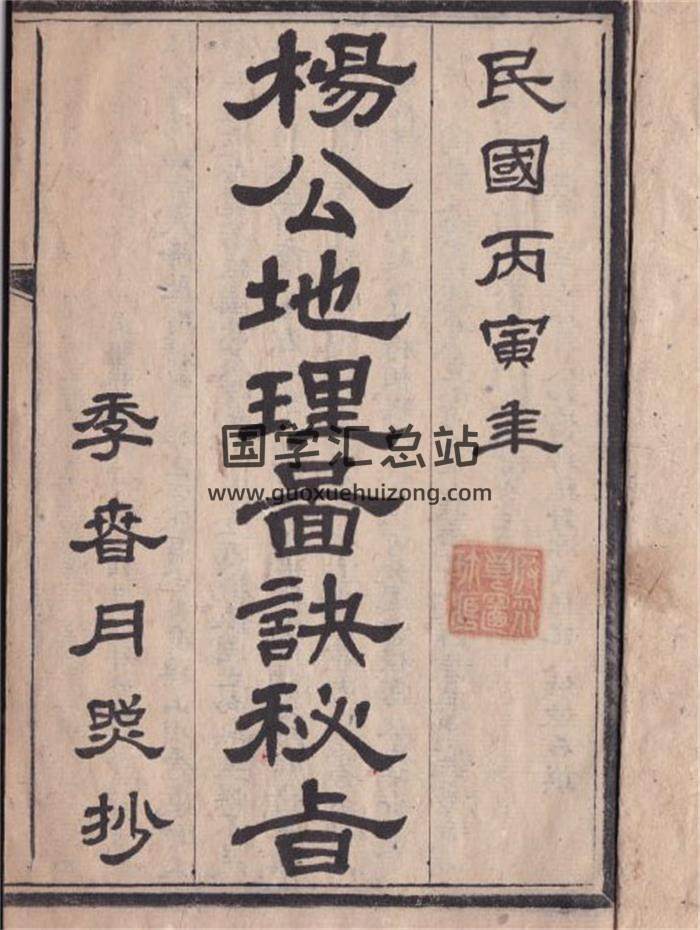 民國丙寅年
楊公地理啚訣秘旨
季春月照抄
国学汇总站
www.guoxuehuizong.com